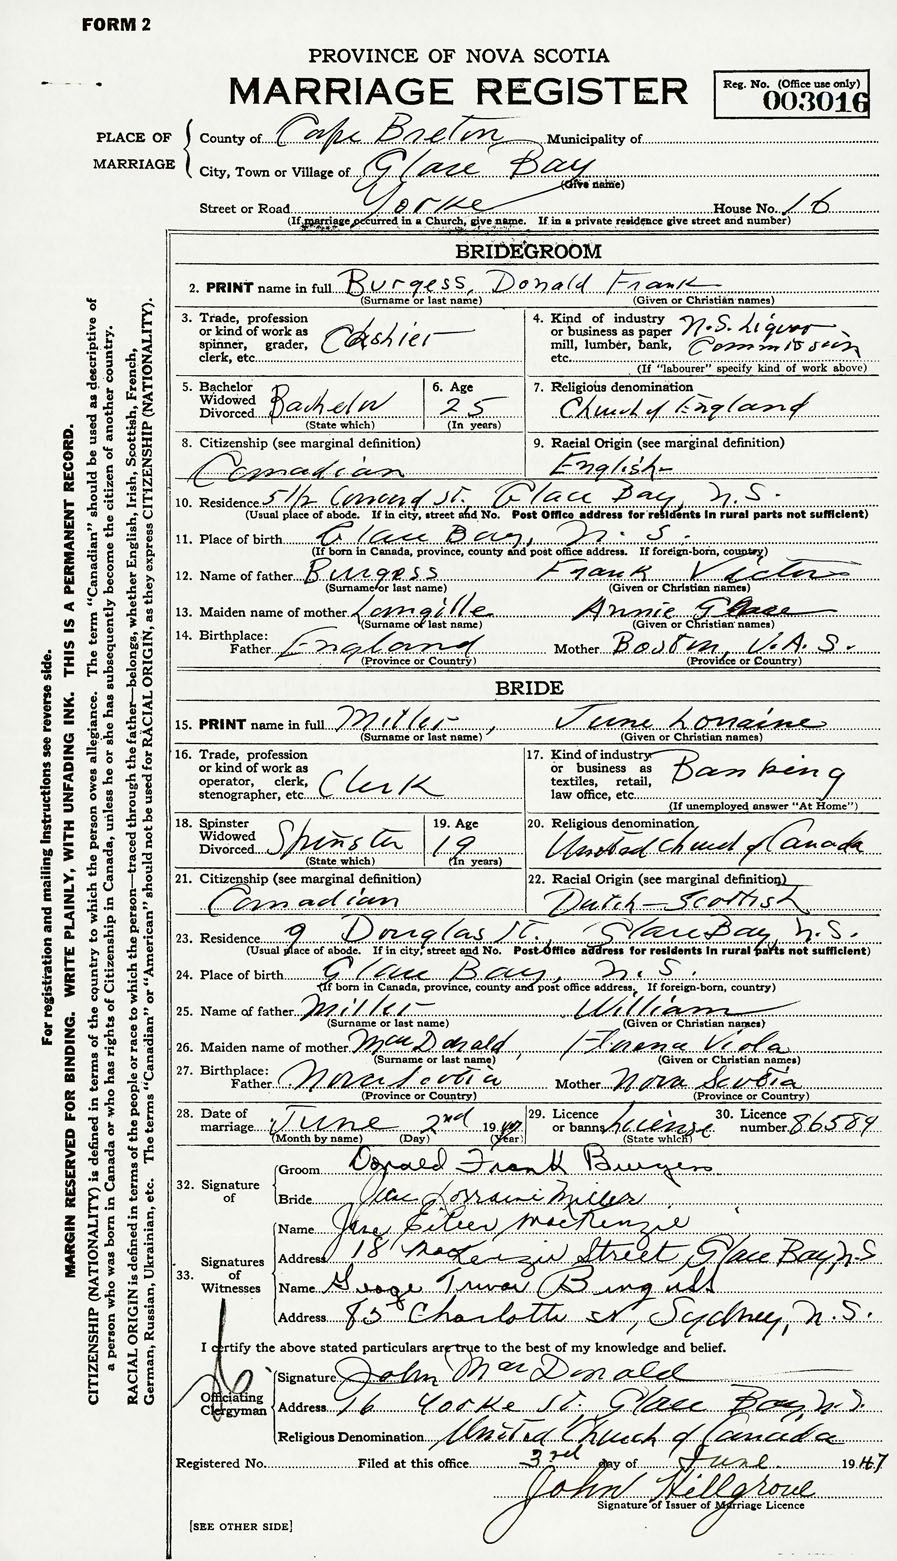 FORM 2
PROVINCE OF NOVA SCOTIA
MARRIAGE REGISTER
Reg. No. (Office use only)
003016
PLACE OF MARRIAGE
County of Cape Breton Municipality of
City, Town or Village of Glace Bay
(Give name)
Street or Road Yorke House No. 16
(If marriage occurred in a Church, give name. If in a private residence give street and number)
BRIDEGROOM
2. PRINT name in full Burgess, Donald Frank
(Surname or last name) (Given or Christian names)
3. Trade, profession or kind of work as spinner, grader, clerk, etc. Cashier
4. Kind of industry or business as paper mill, lumber, bank, etc. N.S. Liquor Commission
(If "labourer" specify kind of work above)
5. Bachelor Widowed Divorced Bachelor
(State which)
6. Age 25
(In years)
7. Religious denomination
Church of England
8. Citizenship (see marginal definition)
Canadian
9. Racial Origin (see marginal definition)
English
10. Residence 51/2 St. Glace Bay, N.S.
(Usual place of abode. If in city, street and No. Post Office address for residents in rural parts not sufficient)
11. Place of birth Glace Bay, N. S.
(If born in Canada, province, county and post office address. If foreign-born, country)
12. Name of father Burgess Frank Victor
(Surname or last name) (Given or Christian names)
13. Maiden name of mother Langille Annie
(Surname or last name) (Given or Christian names)
14. Birthplace: Father England Mother Boston, U.A.S.
(Province or Country) (Province or Country)
BRIDE
15. PRINT name in full Miller, June Lorraine
(Surname or last name) (Given or Christian names)
16. Trade, profession or kind of work as operator, clerk, stenographer, etc. Clerk
17. Kind of industry or business as textiles, retail, law office, etc. Banking
(If unemployed answer "At Home")
18. Spinster Widowed Divorced Spinster
(State which)
19. Age 19
(In years)
20. Religious denomination
United Church of Canada
21. Citizenship (see marginal definition)
Canadian
22. Racial Origin (see marginal definition)
Dutch-Scottish
23. Residence 9 Douglas St. Glace Bay, N.S.
(Usual place of abode. If in city, street and No. Post-Office address for residents in rural parts not sufficient)
24. Place of birth Glace Bay, N. S.
(If born in Canada, province, county and post office address. If foreign-born, country)
25. Name of father Miller William
(Surname or last name) (Given or Christian names)
26. Maiden name of mother MacDonald, Florena Viola
(Surname or last name) (Given or Christian names)
27. Birthplace: Father Nova Scotia Mother Nova Scotia
(Province or Country) (Province or Country)
28. Date of marriage June 2nd 1947
(Month by name) (Day) (Year)
29. Licence or banns License
(State which)
30. Licence number 86584
32. Signature of
Groom Donald Frank Burgess
Bride June Lorraine Miller
33. Signatures of Witnesses
Name Eileen MacKenzie
Address 18 MacKenzie Street, Glace Bay, N.S
Name George Trevor
Address 85 Charlotte St, Sydney, N.S.
I certify the above stated particulars are true to the best of my knowledge and belief.
Officiating Clergyman
Signature John MacDonald
Address 16 Yorke St. Glace Bay, N.S.
Religious Denomination United Church of Canada
Registered No. Filed at this office 3rd day of June 1947
John Hillgrove
Signature of Issuer of Marriage Licence
[SEE OTHER SIDE]
For registration and mailing instructions see reverse side.
MARGIN RESERVED FOR BINDING. WRITE PLAINLY, WITH UNFADING INK. THIS IS A PERMANENT RECORD.
CITIZENSHIP (NATIONALITY) is defined in terms of the country to which the person owes allegiance. The term "Canadian" should be used as descriptive of
a person who was born in Canada or who has rights of Citizenship in Canada, unless he or she has subsequently become the citizen of another country.
RACIAL ORIGIN is defined in terms of the people or race to which the person—traced through the father—belongs, whether English, Irish, Scottish, French,
German, Russian, Ukrainian, etc. The terms "Canadian" or "American" should not be used for RACIAL ORIGIN, as they express CITIZENSHIP (NATIONALITY).